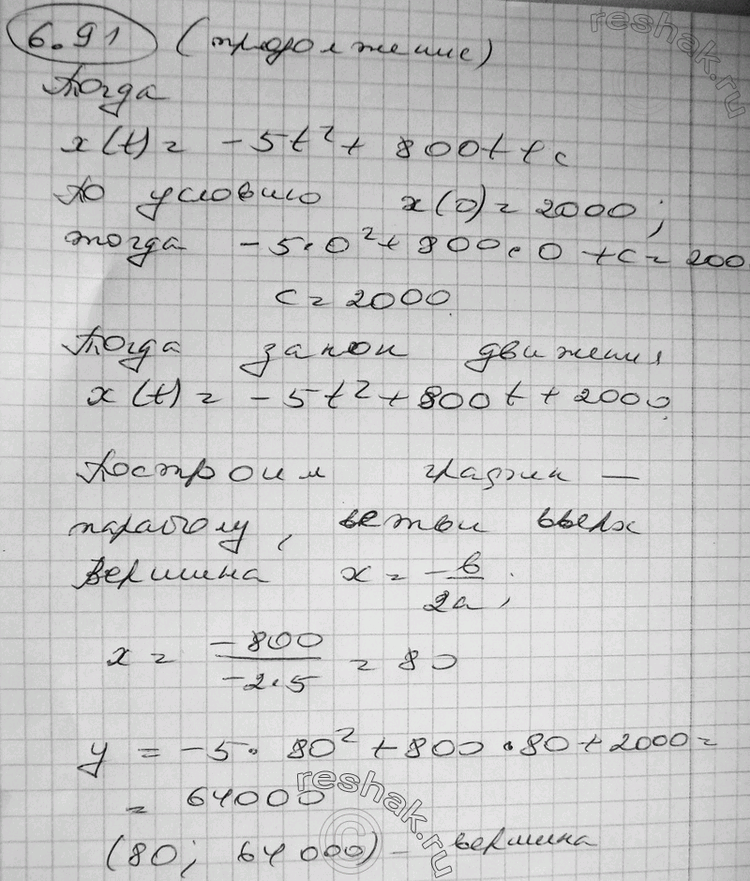 6.91 (продолжение)
reshak.ru
Тогда
x(t) = -5t² + 800t + c
По условию x(0) = 2000;
тогда -5·0² + 800·0 + c = 200
c = 2000
Тогда закон движения
x(t) = -5t² + 800t + 2000
Построим график —
параболу, ветви вверх
Вершина x = -b/2a;
x = -800/-2·5 = 80
y = -5·80² + 800·80 + 2000 =
= 64000
reshak.ru
©
(80; 64000) - вершина